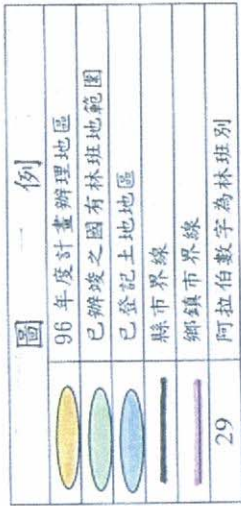 圖例
96年度計畫辦理地區
已辦竣之國有林班地範圍
已登記土地地區
縣市界線
鄉鎮市界線
29 阿拉伯數字為林班別